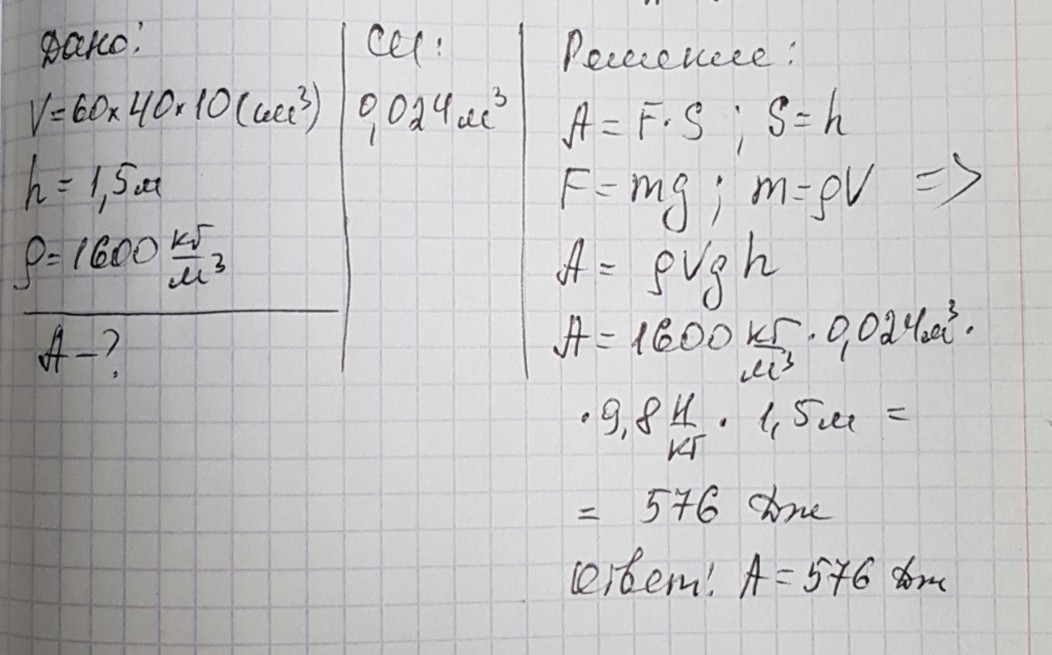 Дано:
V=60×40×10(см³)
h=1,5м
ρ=1600 кг/м³
A-?
СИ:
0,024м³
Решение:
A=F·S; S=h
F=mg; m=ρV =>
A= ρVgh
A=1600 кг/м³·0,024м³·
·9,8 Н/кг · 1,5м =
= 576 Дж
Ответ: A=576 Дж